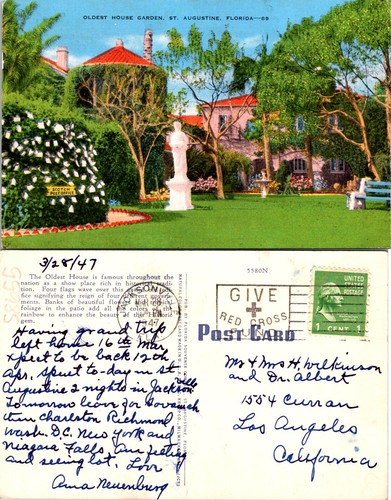 OLDEST HOUSE GARDEN, ST. AUGUSTINE, FLORIDA—59
3/28/47
The Oldest House is famous throughout the
nation as a show place rich in historical
Four flags wave over this
signifying the reign of four
Banks of beautiful
foliage in the patio add all colors
rainbow to enhance the beauty
gem.
5580N
GIVE
RED CROSS
FUND
POST CARD
1 CENT 1
Having grand trip
left home 16th Mar
xpect to be back 12th
Apr. spent to-day in St
Augustine 2 nights in Jacksonville
Tomorrow leave for Savannah
then Charlston Richmond
Wash. D.C. New York and
Niagara Falls. Am feeling
and seeing lot. Love
Anna Neuenburg
Mr & Mrs H. Wilkinson
and Dr. Albert
1554 Curran
Los Angeles
California